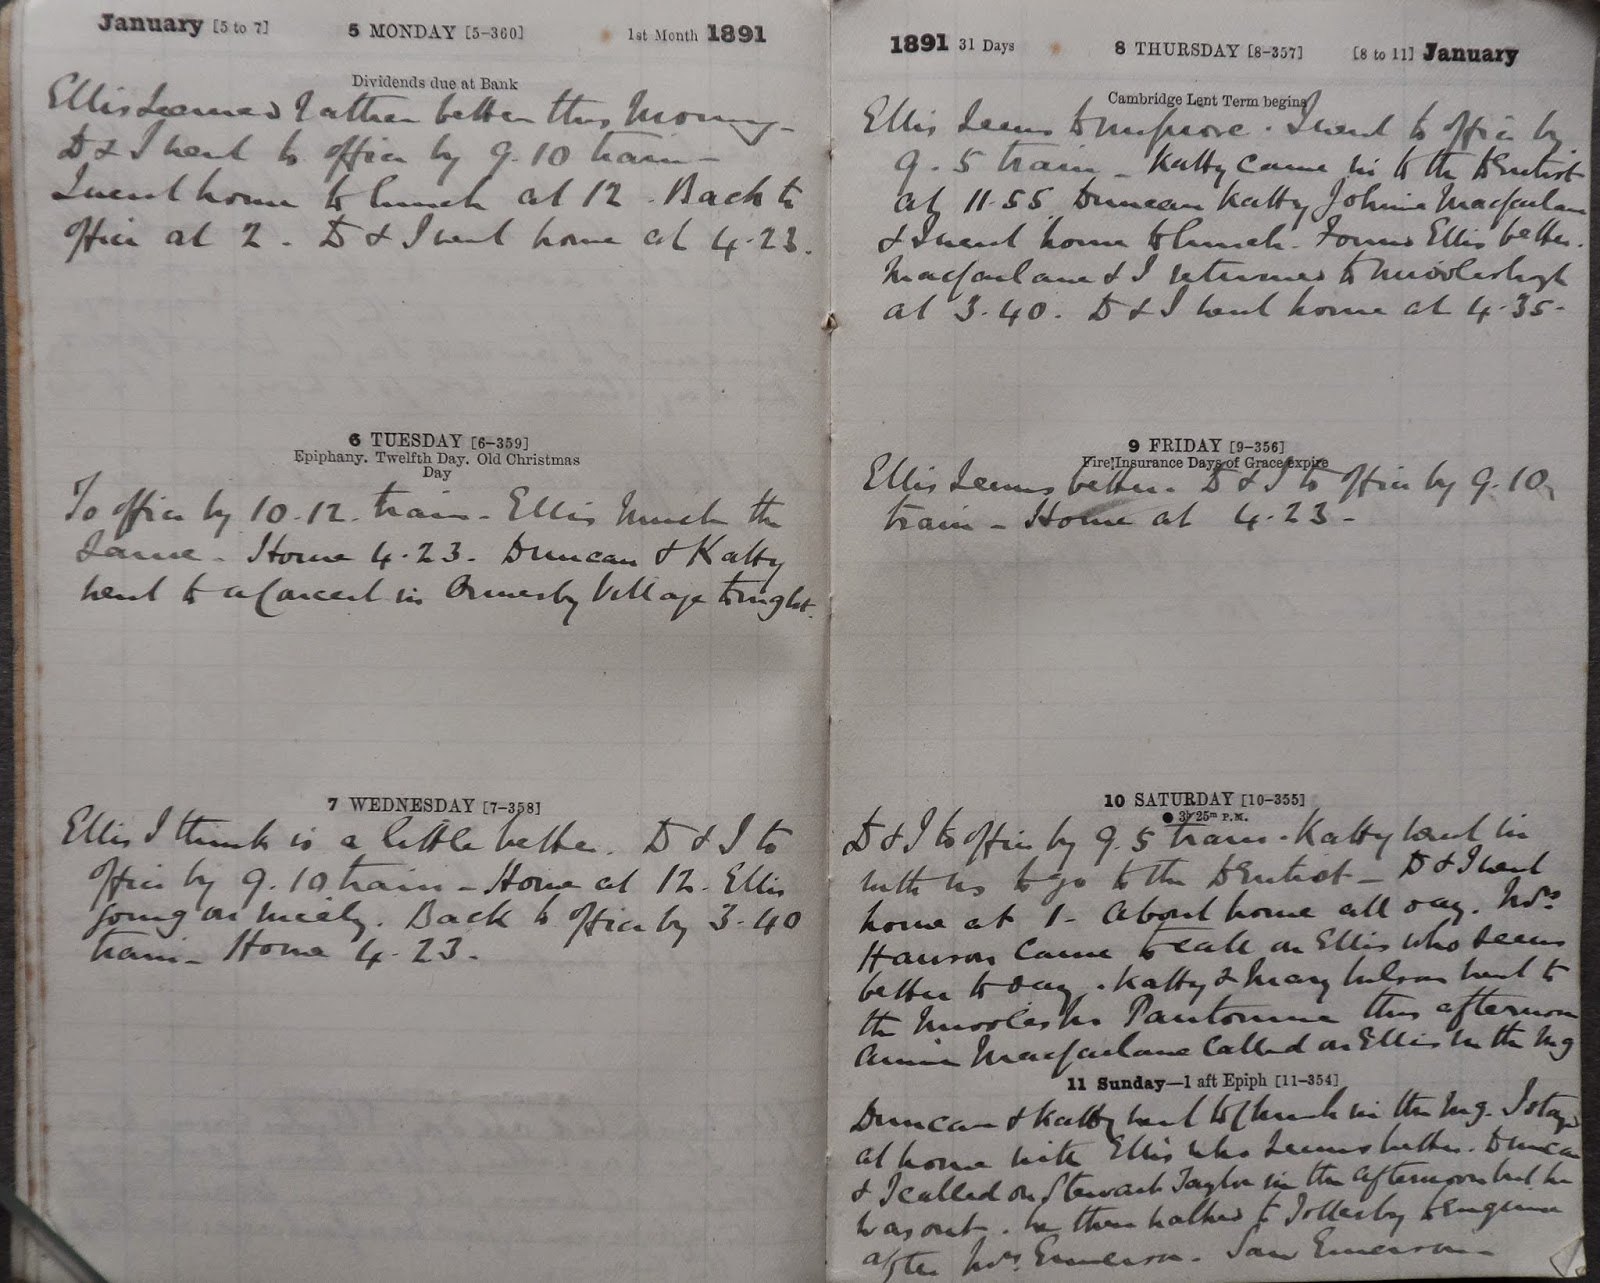 January [5 to 7] 5 MONDAY [5-360] 1st Month 1891
Dividends due at Bank
Ellis seemed rather better this morning -
D & I went to office by 9.10 train -
I went home to lunch at 12. Back to
office at 2. D & I went home at 4.23.
6 TUESDAY [6-359]
Epiphany. Twelfth Day. Old Christmas
Day
To office by 10.12 train - Ellis much the
same - Home 4.23. Duncan & Katty
went to a Concert in Ormesby Village tonight.
7 WEDNESDAY [7-358]
Ellis I think is a little better. D & I to
office by 9.10 train - Home at 12. Ellis
going on nicely. Back to office by 3.40
train - Home 4.23.
1891 31 Days 8 THURSDAY [8-357] [8 to 11] January
Cambridge Lent Term begins
Ellis seems to improve. I went to office by
9.5 train - Katty came in to the Dentist
at 11.55 Duncan Katty Johnie Macfarlane
& I went home to lunch. Found Ellis better.
Macfarlane & I returned to Middlesbrgh
at 3.40. D & I went home at 4.35-
9 FRIDAY [9-356]
Fire Insurance Days of Grace expire
Ellis seems better. D & I to office by 9.10
train - Home at 4.23 -
10 SATURDAY [10-355]
● 3h 25m P.M.
D & I to office by 9.5 train. Katty went in
with us to go to the Dentist - D & I went
home at 1 - About home all day. Mrs
Hanson came to call on Ellis who seems
better to day. Katty & Mary Wilson went to
the Middlesbro Pantomime this afternoon
Annie Macfarlane called on Ellis in the mg
11 Sunday—1 aft Epiph [11-354]
Duncan & Katty went to Church in the mg. I stayed
at home with Ellis who seems better. Duncan
& I called on Stewart Taylor in the afternoon but he
was out. We then walked to Tollesby to enquire
after Mrs Emerson. Saw Emerson -